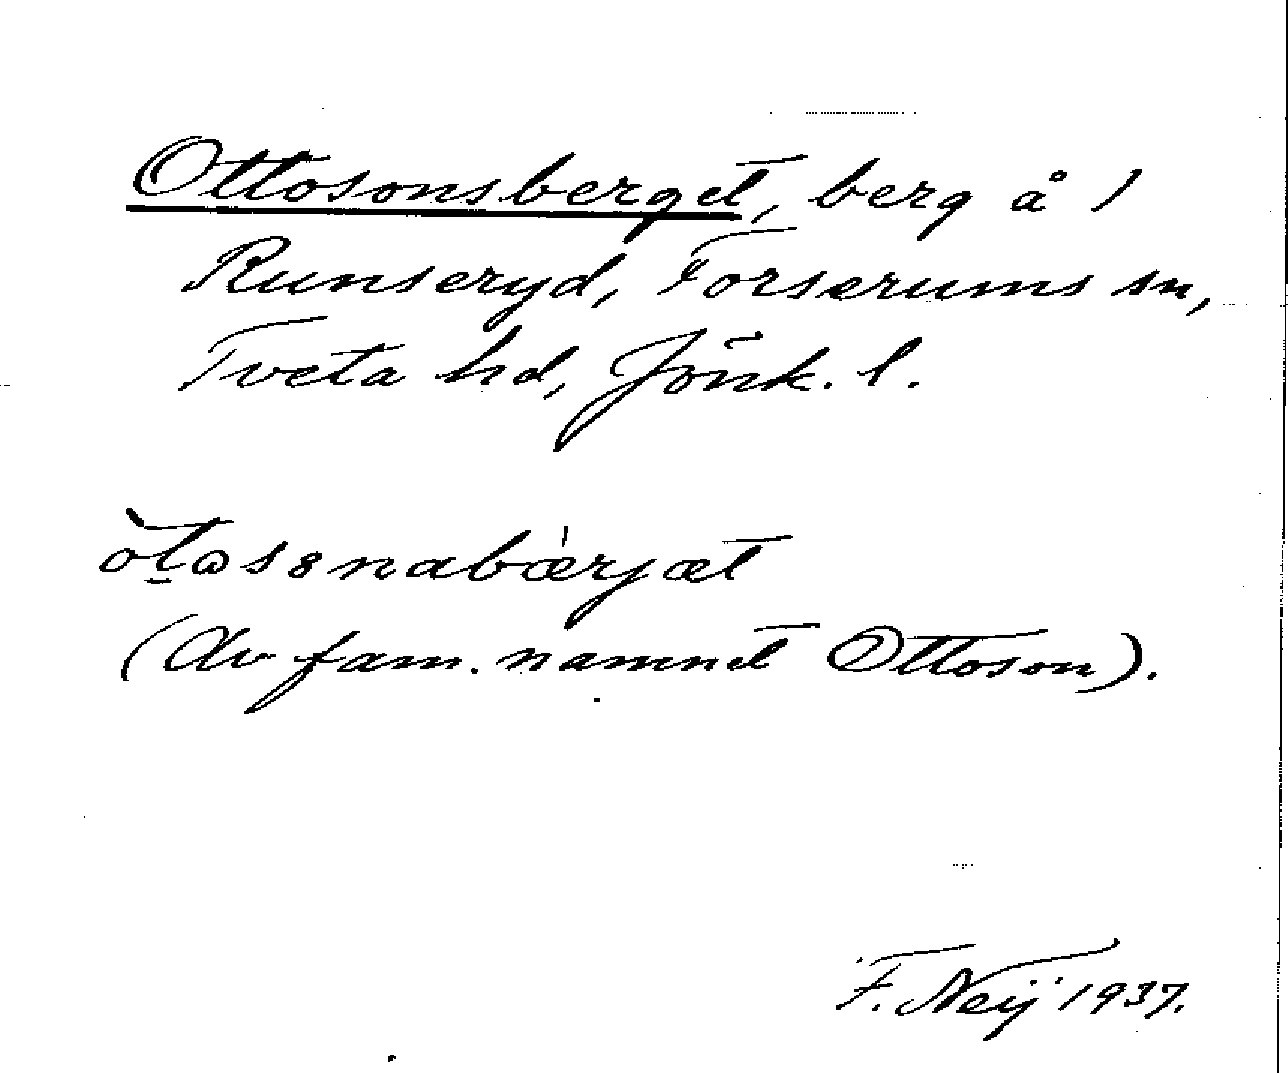 Ottosonsberget, berg å 1
Runseryd, Forserums sn,
Tveta hd, Jönk. l.
(Av fam. namnet Ottoson).
F. Neij 1937.